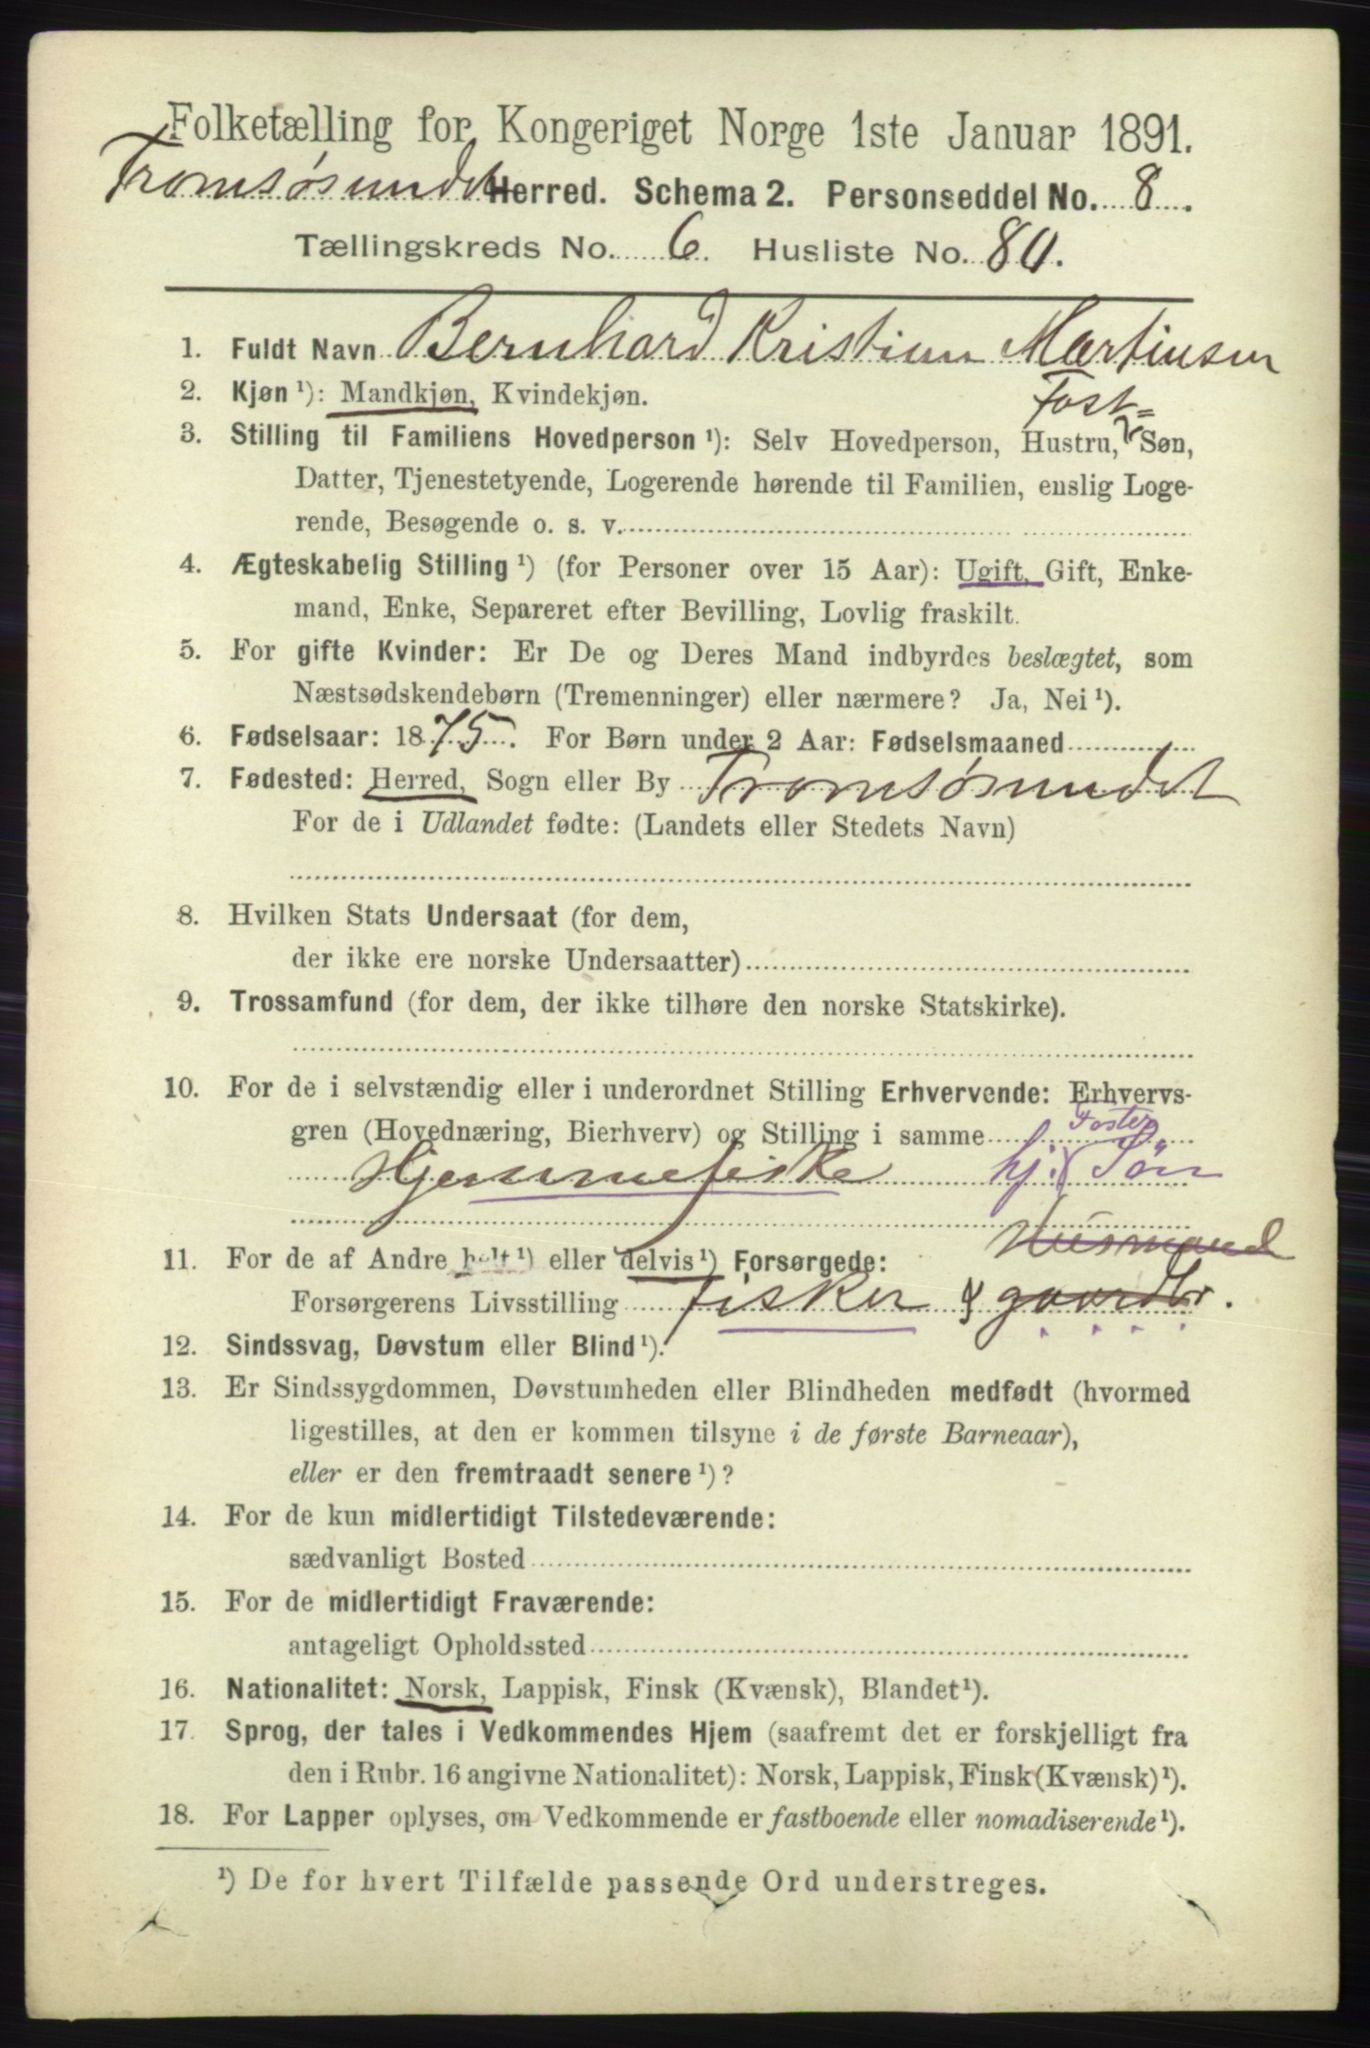 Folketælling for Kongeriget Norge 1ste Januar 1891.
Tromsøsundet Herred. Schema 2. Personseddel No. 8.
Tællingskreds No. 6. Husliste No. 80.
1. Fuldt Navn Bernhard Kristian Martinsen
2. Kjøn ¹): Mandkjøn, Kvindekjøn.
Fost=
3. Stilling til Familiens Hovedperson ¹): Selv Hovedperson, Hustru, Søn,
Datter, Tjenestetyende, Logerende hørende til Familien, enslig Loge-
rende, Besøgende o. s. v.
4. Ægteskabelig Stilling ¹) (for Personer over 15 Aar): Ugift, Gift, Enke-
mand, Enke, Separeret efter Bevilling, Lovlig fraskilt.
5. For gifte Kvinder: Er De og Deres Mand indbyrdes beslægtet, som
Næstsødskendebørn (Tremenninger) eller nærmere? Ja, Nei ¹).
6. Fødselsaar: 1875. For Børn under 2 Aar: Fødselsmaaned
7. Fødested: Herred, Sogn eller By Tromsøsundet
For de i Udlandet fødte: (Landets eller Stedets Navn)
8. Hvilken Stats Undersaat (for dem,
der ikke ere norske Undersaatter)
9. Trossamfund (for dem, der ikke tilhøre den norske Statskirke).
10. For de i selvstændig eller i underordnet Stilling Erhvervende: Erhvervs-
gren (Hovednæring, Bierhverv) og Stilling i samme Foster
Hjemmefiske hj. Søn
Husmand
11. For de af Andre helt ¹) eller delvis ¹) Forsørgede:
Forsørgerens Livsstilling Fisker & gaardbr.
12. Sindssvag, Døvstum eller Blind ¹).
13. Er Sindssygdommen, Døvstumheden eller Blindheden medfødt (hvormed
ligestilles, at den er kommen tilsyne i de første Barneaar),
eller er den fremtraadt senere ¹)?
14. For de kun midlertidigt Tilstedeværende:
sædvanligt Bosted
15. For de midlertidigt Fraværende:
antageligt Opholdssted
16. Nationalitet: Norsk, Lappisk, Finsk (Kvænsk), Blandet ¹).
17. Sprog, der tales i Vedkommendes Hjem (saafremt det er forskjelligt fra
den i Rubr. 16 angivne Nationalitet): Norsk, Lappisk, Finsk (Kvænsk) ¹).
18. For Lapper oplyses, om Vedkommende er fastboende eller nomadiserende ¹).
¹) De for hvert Tilfælde passende Ord understreges.